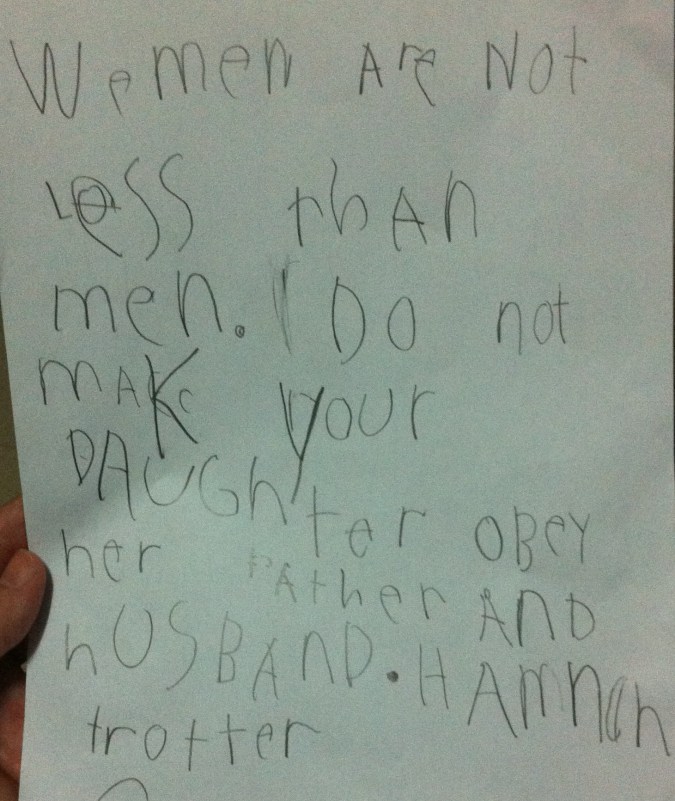 Wemen Are Not
Less thAn
men. Do not
mAKe your
DAUGhter OBey
her FAther AnD
hUSBAnD. HAmnah
trotter